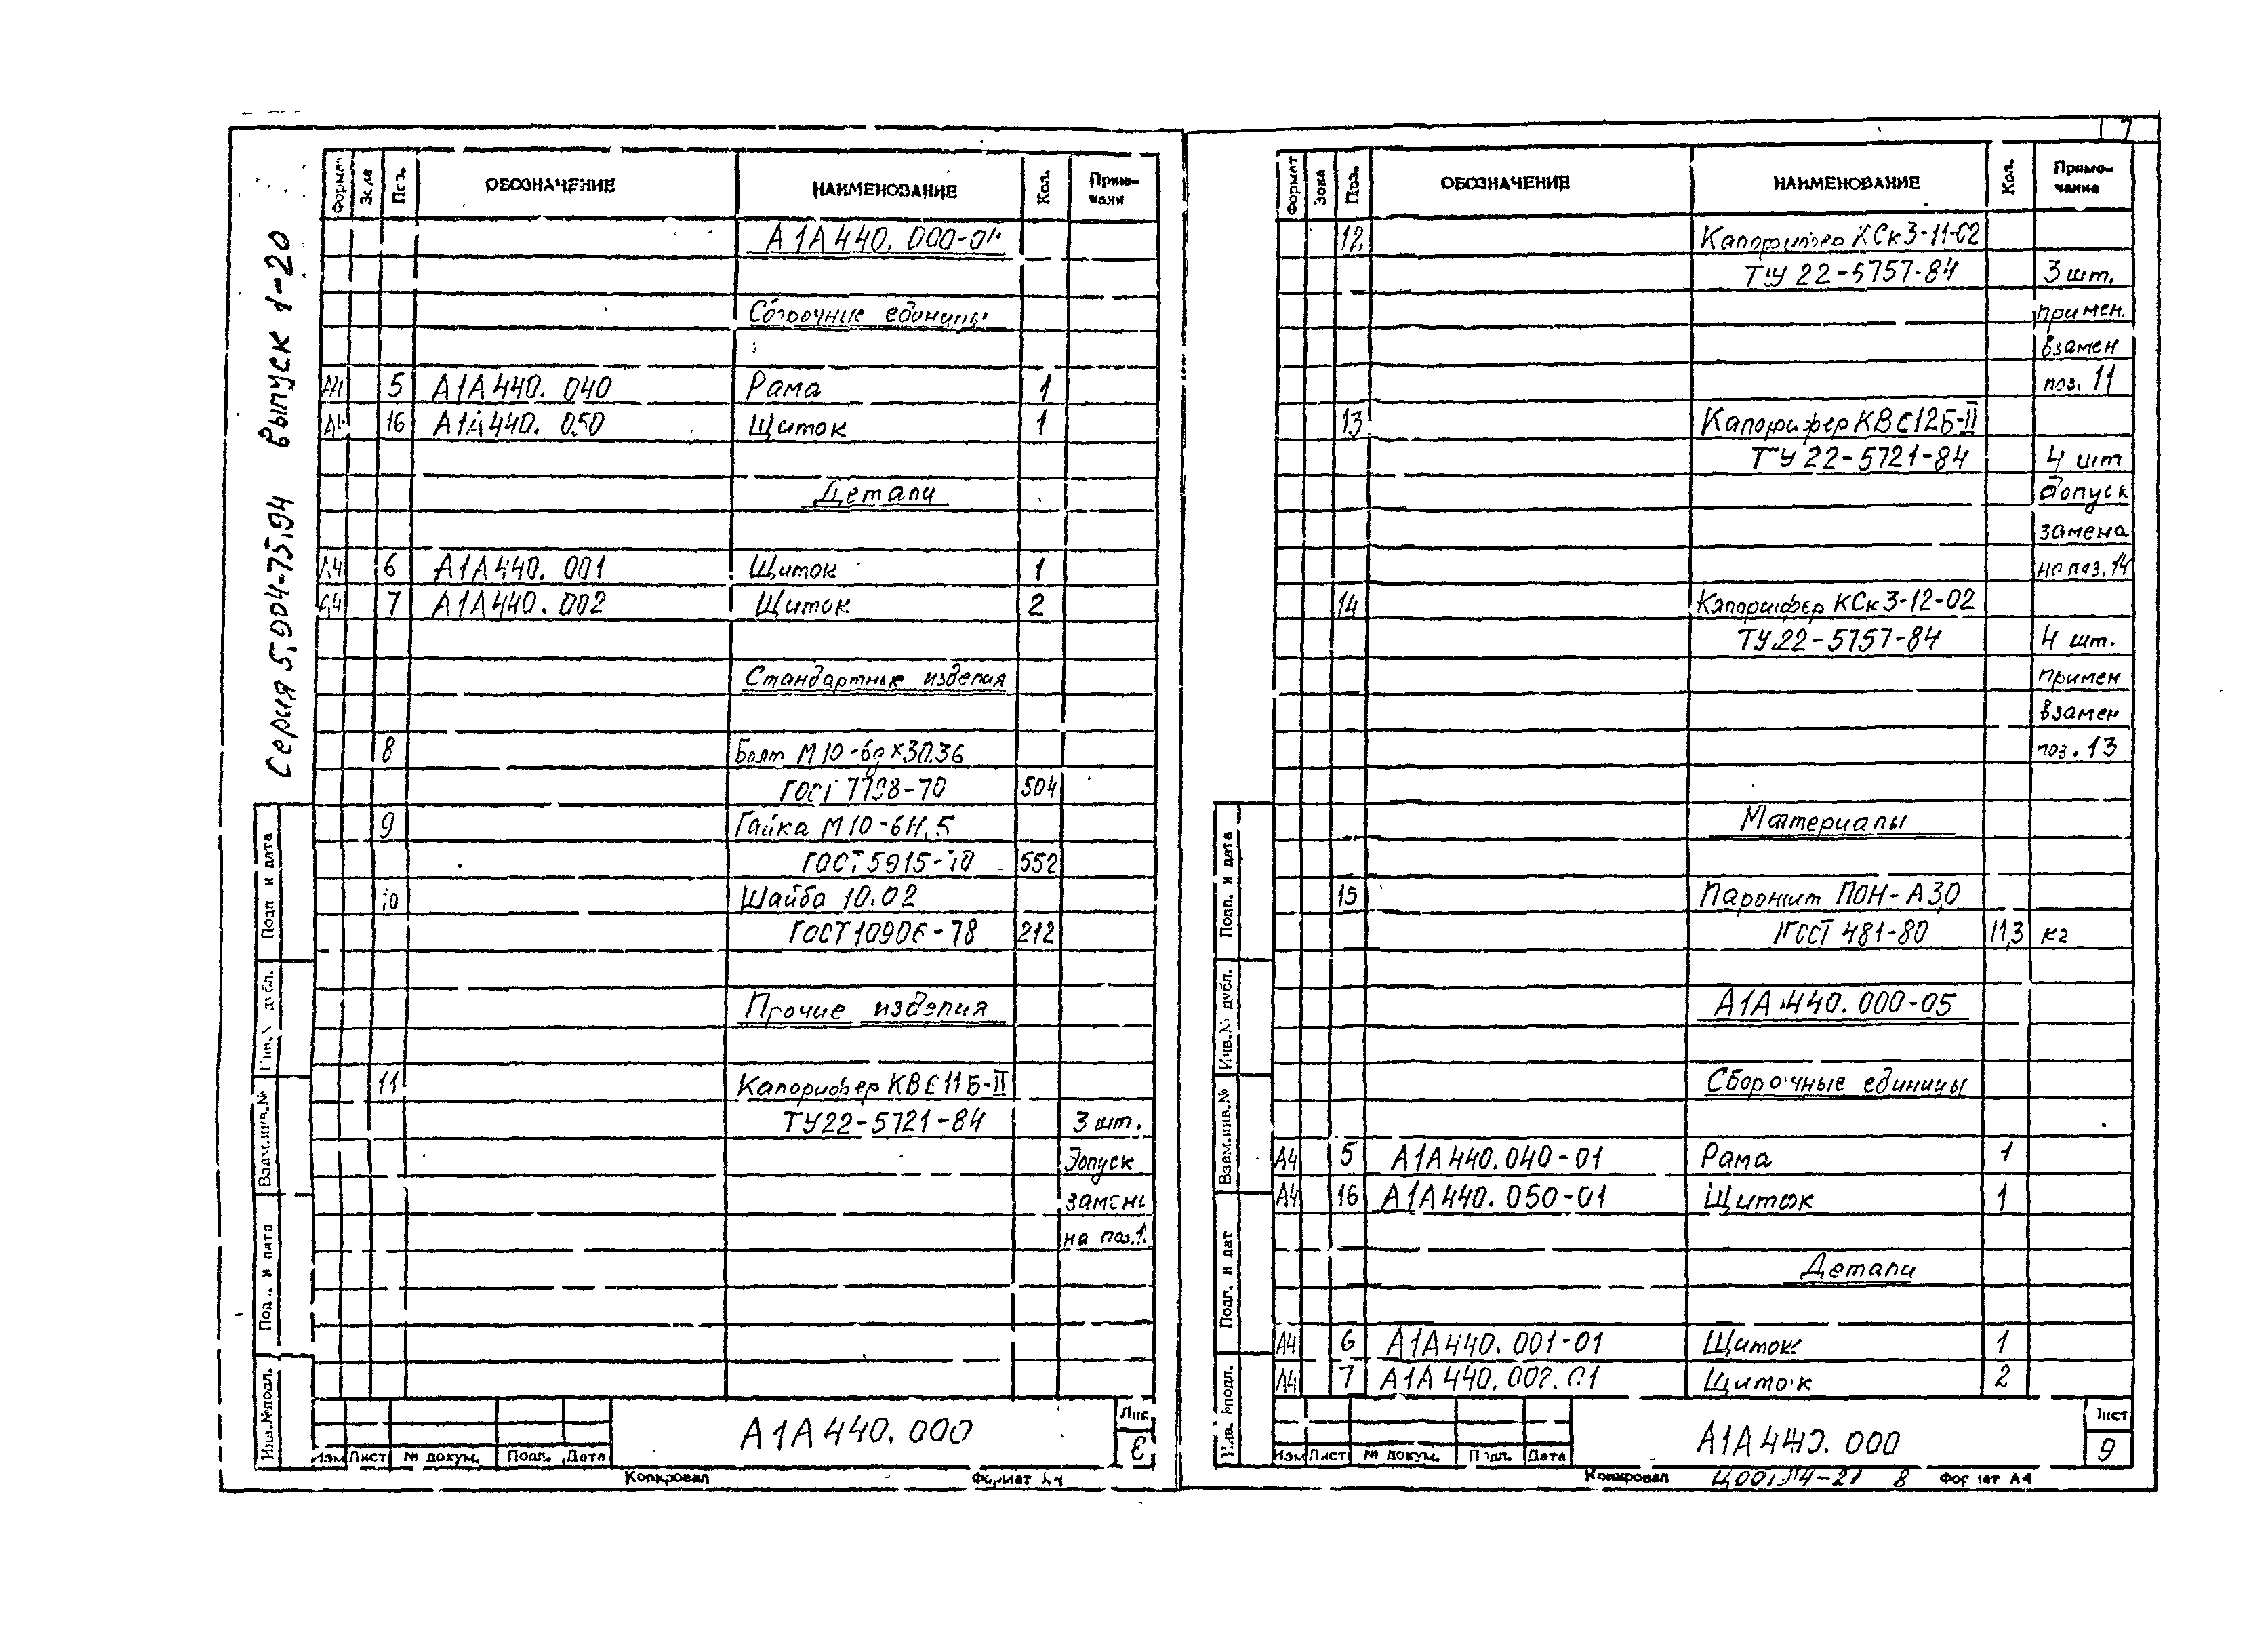 7
Серия 5.904-75.94 выпуск 1-20
Формат Зона Поз. ОБОЗНАЧЕНИЕ НАИМЕНОВАНИЕ Кол.
А1А440.000-04
Сборочные единицы
А4 5 А1А440.040 Рама 1
А4 16 А1А440.050 Щиток 1
Детали
А4 6 А1А440.001 Щиток 1
А4 7 А1А440.002 Щиток 2
Стандартные изделия
8 Болт М10-6gх30.36
ГОСТ 7798-70 504
9 Гайка М10-6Н.5
ГОСТ 5915-70 552
10 Шайба 10.02
ГОСТ 10906-78 212
Прочие изделия
11 Калорифер КВС11Б-II
ТУ22-5721-84 3 шт.
Допуск
замена
на поз.
Подп. и дата
Инв.№ дубл.
Взам.инв.№
Подп. и дата
Инв.№подл.
Изм Лист № докум. Подп. Дата
А1А440.000
Лист
8
Копировал Формат А4
Формат Зона Поз. ОБОЗНАЧЕНИЕ НАИМЕНОВАНИЕ Кол. Приме-
чание
12 Калорифер КСк3-11-02
ТУ 22-5757-84 3 шт.
примен.
взамен
поз. 11
13 Калорифер КВС12Б-II
ТУ 22-5721-84 4 шт
допуск
замена
на поз.14
14 Калорифер КСк3-12-02
ТУ.22-5757-84 4 шт.
примен
взамен
поз. 13
Материалы
15 Паронит ПОН-А3,0
ГОСТ 481-80 11,3 кг
А1А440.000-05
Сборочные единицы
А4 5 А1А440.040-01 Рама 1
А4 16 А1А440.050-01 Щиток 1
Детали
А4 6 А1А440.001-01 Щиток 1
А4 7 А1А440.002.01 Щиток 2
Подп. и дата
Инв.№ дубл.
Взам.инв.№
Подп. и дат
Инв. №подл.
Изм Лист № докум. Подп. Дата
А1А440.000
Лист
9
Копировал 8 Формат А4